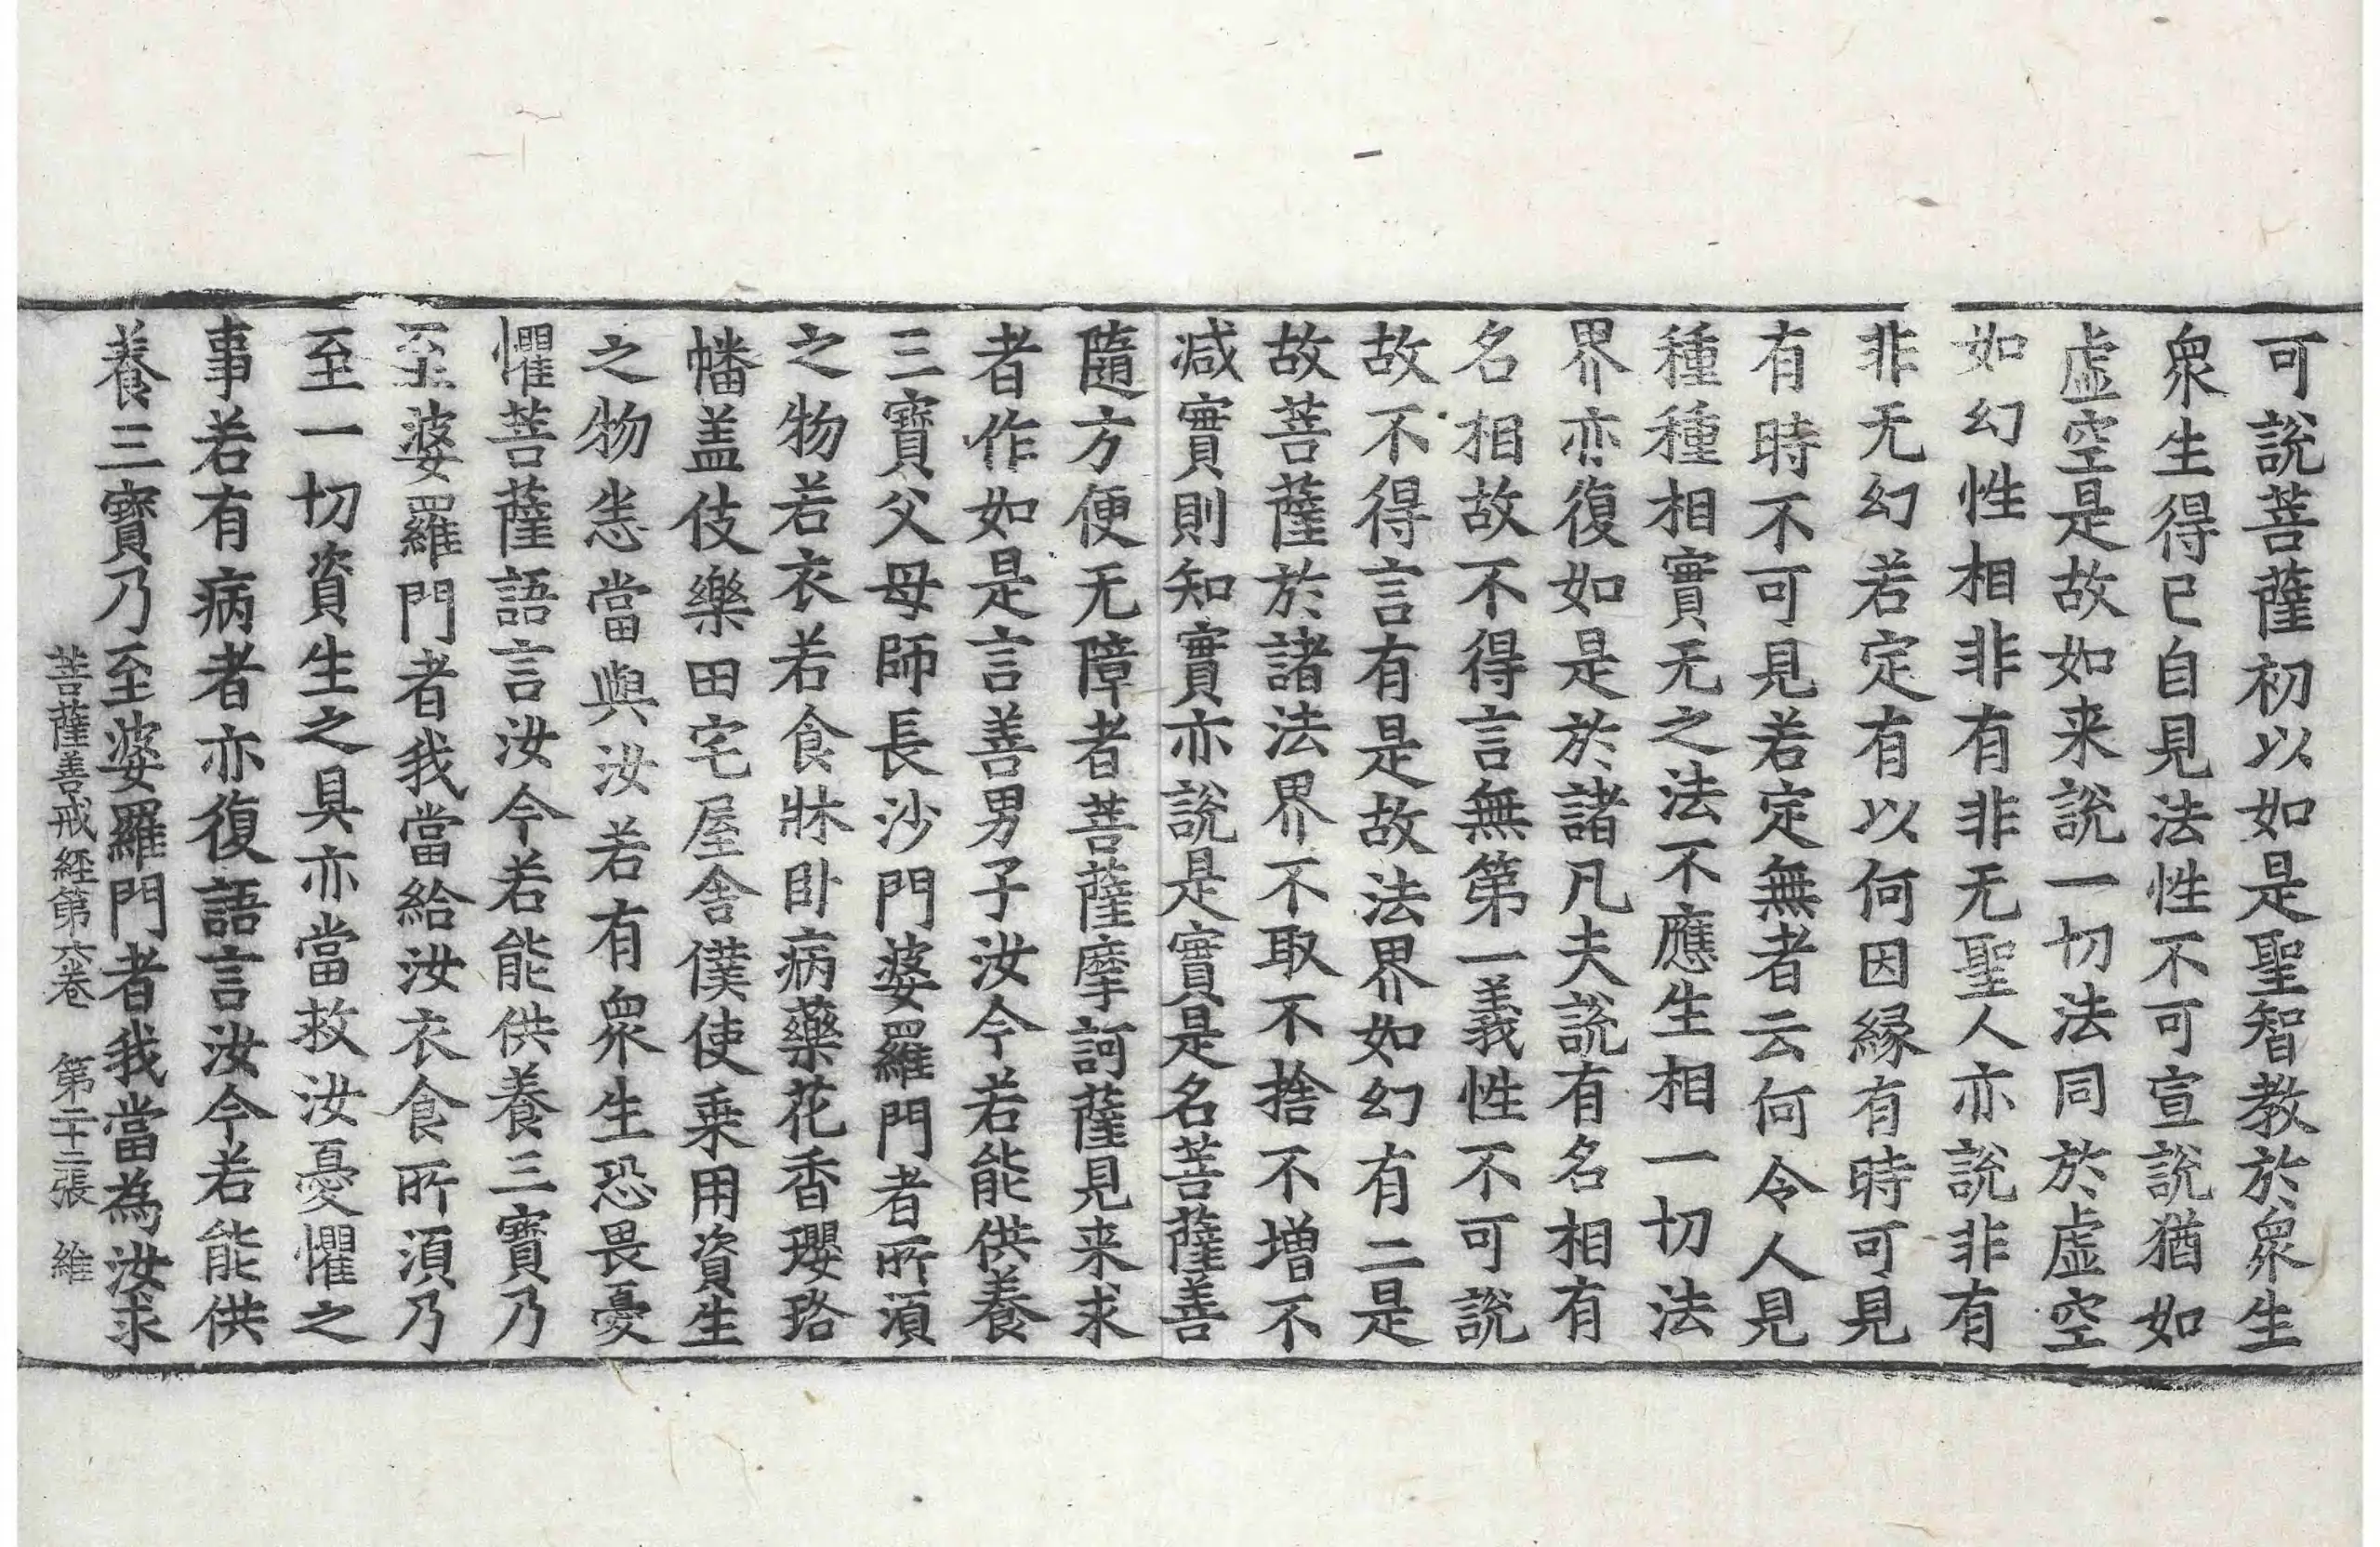 可說菩薩初以如是聖智教於衆生
衆生得已自見法性不可宣說猶如
虛空是故如来說一切法同於虛空
如幻性相非有非无聖人亦說非有
非无幻若定有以何因緣有時可見
有時不可見若定無者云何令人見
種種相實无之法不應生相一切法
界亦復如是於諸凡夫說有名相有
名相故不得言無第一義性不可說
故不得言有是故法界如幻有二是
故菩薩於諸法界不取不捨不增不
减實則知實亦說是實是名菩薩善
隨方便无障者菩薩摩訶薩見来求
者作如是言善男子汝今若能供養
三寶父母師長沙門婆羅門者所須
之物若衣若食牀卧病藥花香瓔珞
幡盖伎樂田宅屋舍僕使乗用資生
之物悉當與汝若有衆生恐畏憂
懼菩薩語言汝今若能供養三寶乃
至婆羅門者我當給汝衣食所須乃
至一切資生之具亦當救汝憂懼之
事若有病者亦復語言汝今若能供
養三寶乃至婆羅門者我當為汝求
菩薩善戒經第六卷 第二十二張 維